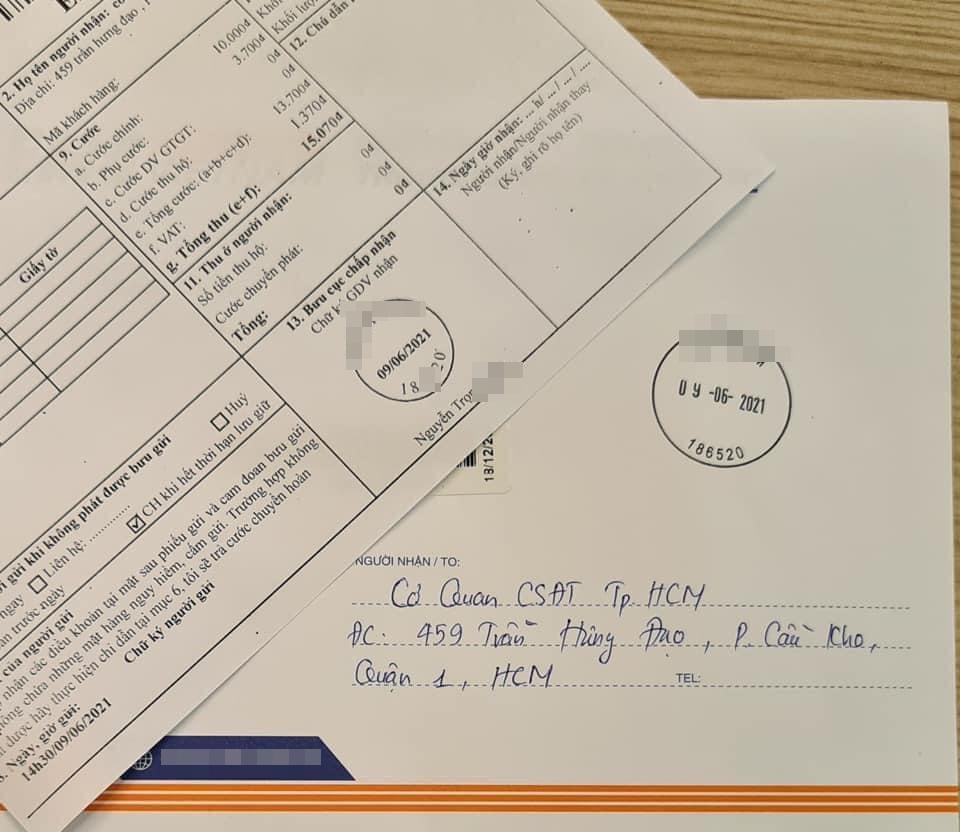 2. Họ tên người nhận:
Địa chỉ: 459 trần hưng đạo,
Mã khách hàng:
9. Cước
a. Cước chính: 10.000đ
b. Phụ cước: 3.700đ
c. Cước DV GTGT: 0đ
d. Cước thu hộ: 0đ
e. Tổng cước: (a+b+c+d): 13.700đ
f. VAT: 1.370đ
g. Tổng thu (e+f): 15.070đ
11. Thu ở người nhận:
Số tiền thu hộ: 0đ
Cước chuyển phát: 0đ
Tổng: 0đ
12. Chú dẫn
13. Bưu cục chấp nhận
GDV nhận
09/06/2021
Nguyễn
14. Ngày giờ nhận: ... h/ ... / ... / ....
Người nhận/Người nhận thay
(Ký, ghi rõ họ tên)
Giấy tờ
gửi khi không phát được bưu gửi
ngay Liên hệ: ............ Huỷ
trước ngày CH khi hết thời hạn lưu giữ
của người gửi
nhận các điều khoản tại mặt sau phiếu gửi và cam đoan bưu gửi
chứa những mặt hàng nguy hiểm, cấm gửi. Trường hợp không
được hãy thực hiện chỉ dẫn tại mục 6, tôi sẽ trả cước chuyển hoàn
Ngày, giờ gửi: Chữ ký người gửi
14h30/09/06/2021
09-06-2021
186520
18/12/2
NGƯỜI NHẬN / TO:
Cơ Quan CSĐT Tp. HCM
ĐC: 459 Trần Hưng Đạo, P. Cầu Kho,
Quận 1, HCM TEL: